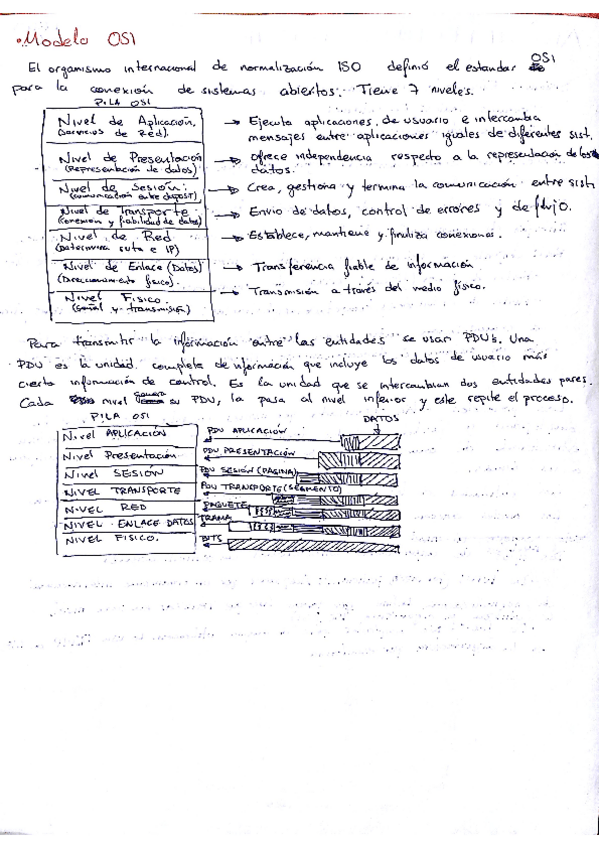 • Modelo OSI
El organismo internacional de normalización ISO definió el estandar OSI
para la conexión de sistemas abiertos. Tiene 7 niveles.
PILA OSI
Nivel de Aplicación. (Servicios de Red). → Ejecuta aplicaciones de usuario e intercambia
mensajes entre aplicaciones iguales de diferentes sist.
Nivel de Presentación (Representación de datos) → Ofrece independencia respecto a la representación de los
datos.
Nivel de Sesión: (comunicación entre disposit) → Crea, gestiona y termina la comunicación entre sist
Nivel de Transporte (Conexion y fiabilidad de datos) → Envio de datos, control de errores y de flujo.
Nivel de Red (Determina ruta e IP) → Establece, mantiene y finaliza conexiones.
Nivel de Enlace (Datos) (Direccionamiento físico). → Transferencia fiable de información
Nivel Fisico. (Señal y transmisión) → Transmisión a través del medio físico.
Para transmitir la información entre las entidades se usan PDUs. Una
PDU es la unidad completa de información que incluye los datos de usuario más
cierta información de control. Es la unidad que se intercambian dos entidades pares.
Cada nivel genera su PDU, la pasa al nivel inferior y este repite el proceso.
PILA OSI DATOS
Nivel APLICACIÓN PDU APLICACIÓN
Nivel Presentación PDU PRESENTACIÓN
Nivel SESIÓN PDU SESIÓN (PAGINA)
NIVEL TRANSPORTE PDU TRANSPORTE (SEGMENTO)
NIVEL RED PAQUETE
NIVEL ENLACE DATOS TRAMA
NIVEL FISICO. BITS